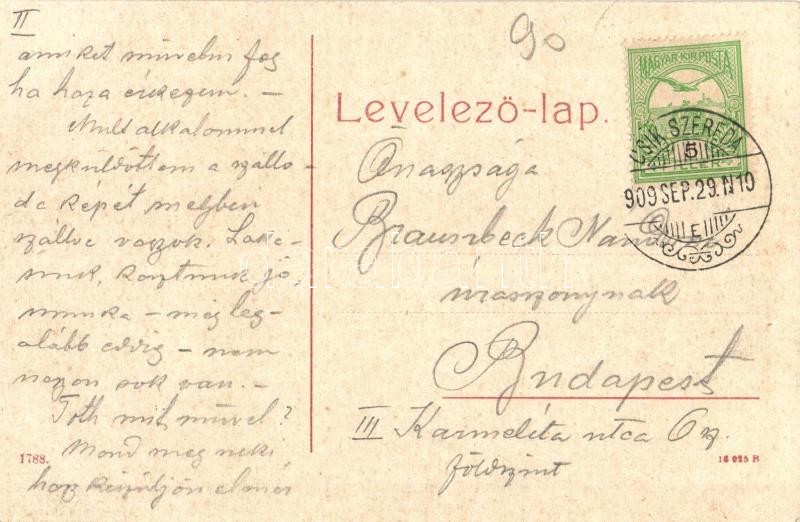 II
amiket művelni fog
ha haza érkezem. —
Mult alkalommal
megküldöttem a szállo-
da képét melyben
szállva vagyok. Laká-
sunk, kosztunk jó,
munka — még leg-
alább eddig — nem
nagyon sok van. —
Toth mit művel?
Mond meg neki
hogy készüljön el már
1788.
90
Levelező-lap.
MAGYAR·KIR·POSTA
CSIK-SZEREDA
5
909 SEP.29.N10
E
Őnagysága
Braunbeck
úraszonynak
Budapest
III Karmelita utca 6 sz
földszint
16 025 B